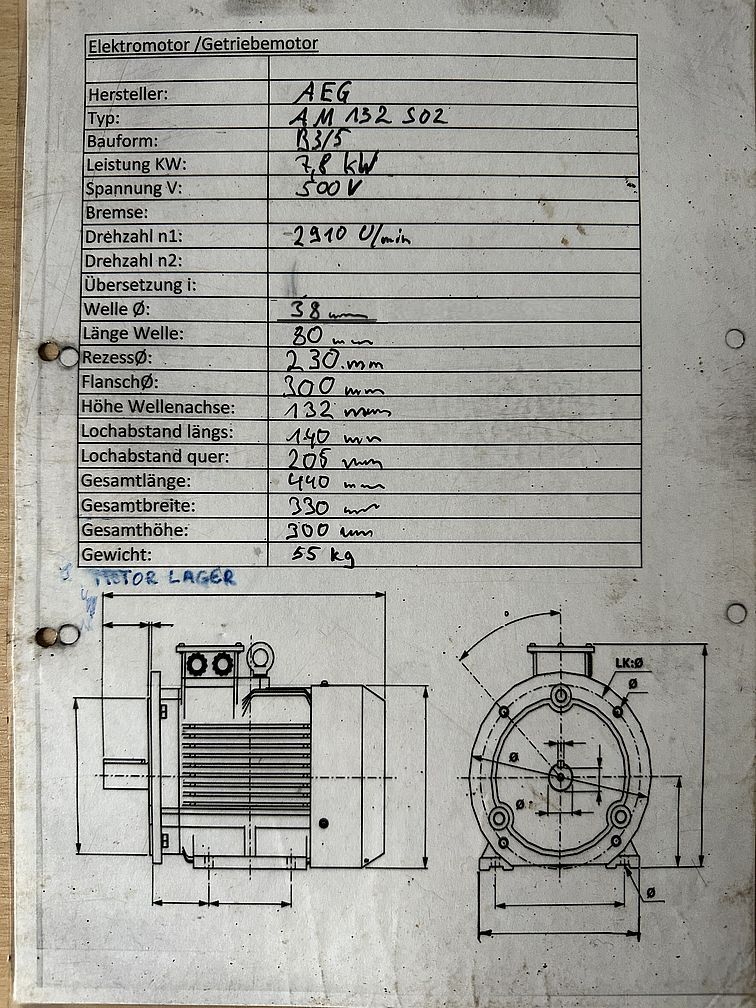 Elektromotor /Getriebemotor
Hersteller: AEG
Typ: AM 132 S02
Bauform: B3/5
Leistung KW: 7,8 kW
Spannung V: 500 V
Bremse:
Drehzahl n1: 2910 U/min
Drehzahl n2:
Übersetzung i:
Welle Ø: 38 mm
Länge Welle: 80 mm
RezessØ: 230 mm
FlanschØ: 300 mm
Höhe Wellenachse: 132 mm
Lochabstand längs: 140 mm
Lochabstand quer: 205 mm
Gesamtlänge: 440 mm
Gesamtbreite: 330 mm
Gesamthöhe: 300 mm
Gewicht: 55 kg
LAGER
LK:Ø
Ø
Ø
Ø
Ø